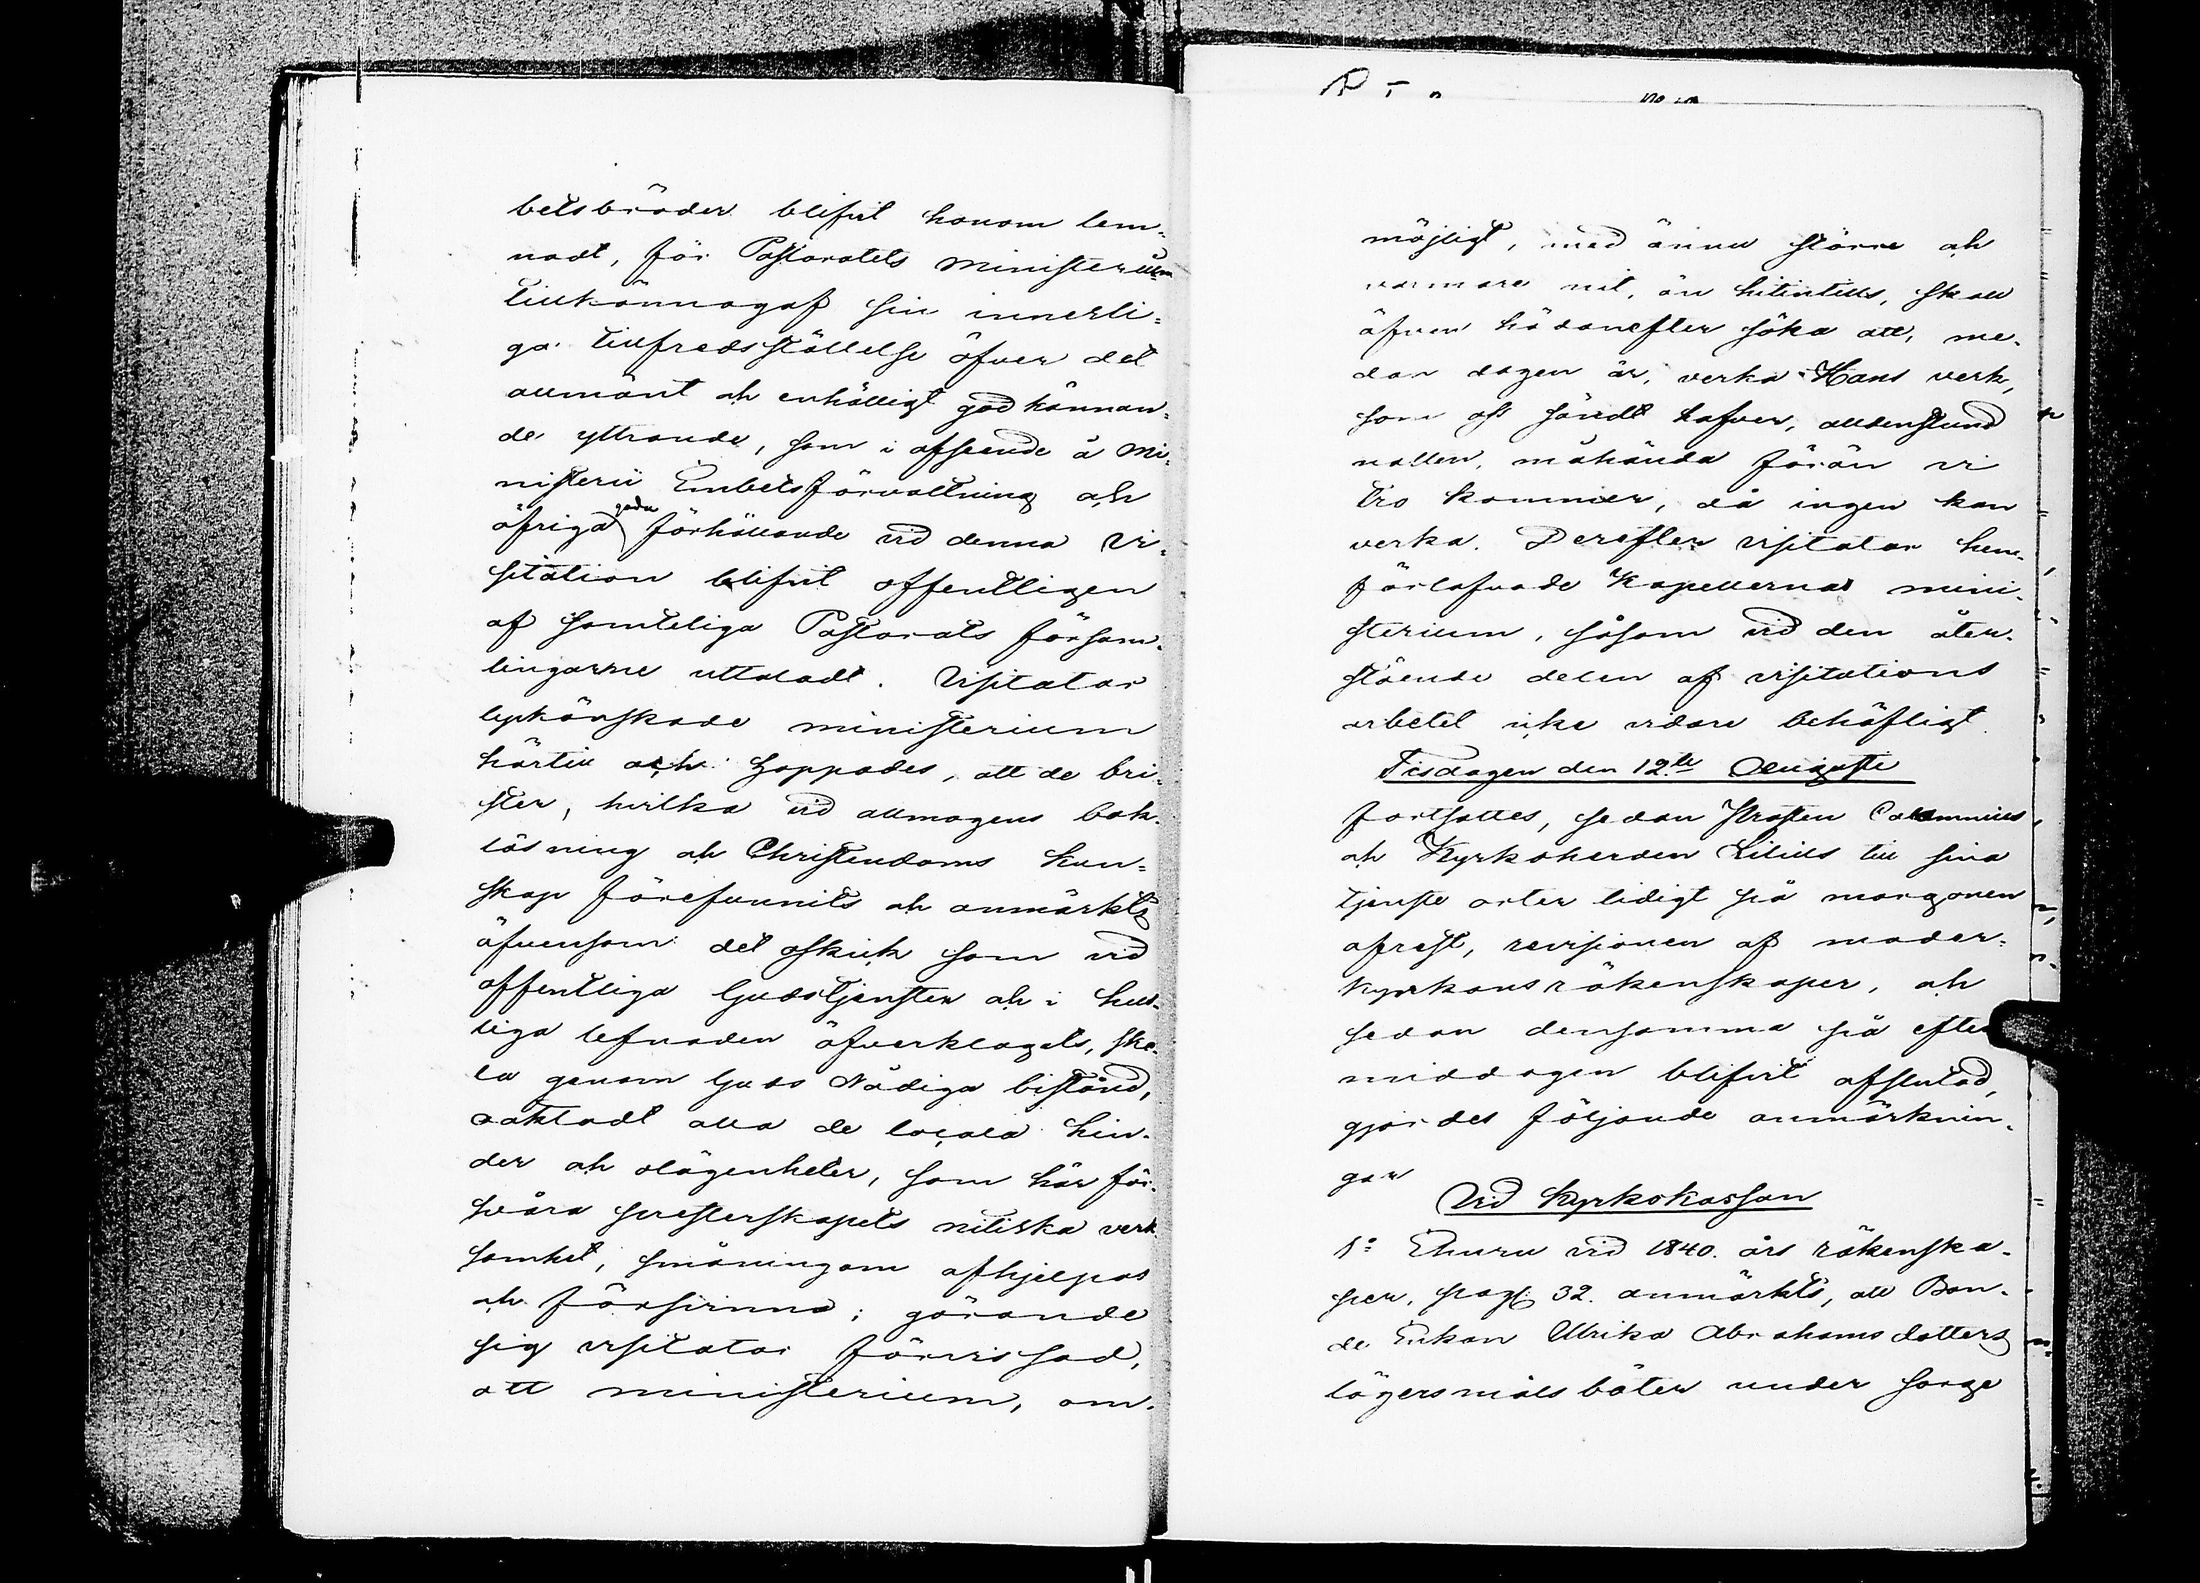 betsbröder blifvit honom lem-
nadt, för Pastoratets ministerium
tillkännagaf sin innerli-
ga tillfredsställelse öfver det
allmänt och enhälligt godkännan-
de yttrande, som i afseende å Mi-
nisterii Embetsförvaltning och
öfriga goda förhållande vid denna Vi-
sitation blifvit offentligen
af samteliga Pastorats församl-
lingarne uttaladt. Visitator
lyckönskade ministerium
härtill och hoppades, att de bri-
ster, hvilka vid allmogens bok-
läsning och Christendoms kun-
skap förefunnits och anmärkts
äfvensom det oskick som vid
offentliga Gudstjensten och i hus-
liga lefnaden öfverklagats, ska-
la genom Guds Nådiga bistånd,
oaktadt alla de locala hin-
der och olägenheter, som här för-
svåra presterskapets nitiska verk
samhet, småningom afhjelpas
och försvinna; görande
sig visitator förvissad,
att ministerium, om-
möjligt, med ännu större och
varmare nit, än hitintills, skall
äfven hädanefter söka att, me-
dan dagen är, verka Hans verk,
som oss sändt hafver, alldenstund
natten, måhända förän vi
tro kommer, då ingen kan
verka. Derefter visitator hem-
förlofvade Kapellernas mini-
sterium, såsom vid den åter-
stående delen af visitations
arbetet icke vidare behöfligt.
Tisdagen den 12te Augusti
fortsattes, sedan Prosten Calamnius
och Kyrkoherden Lilius till sina
tjenste orter tidigt på morgonen
afrest, revisionen af moder-
kyrkans räkenskaper, och
sedan densamma på efter
middagen blifvit afslutad,
gjordes följande anmärknin-
gar
Vid Kyrkokassan
1o Ehuru vid 1840. års räkenska-
per, pag: 32. anmärkts, att Bon-
de Enkan Ulrika Abrahamsdotters
lägersmåls böter under sorge